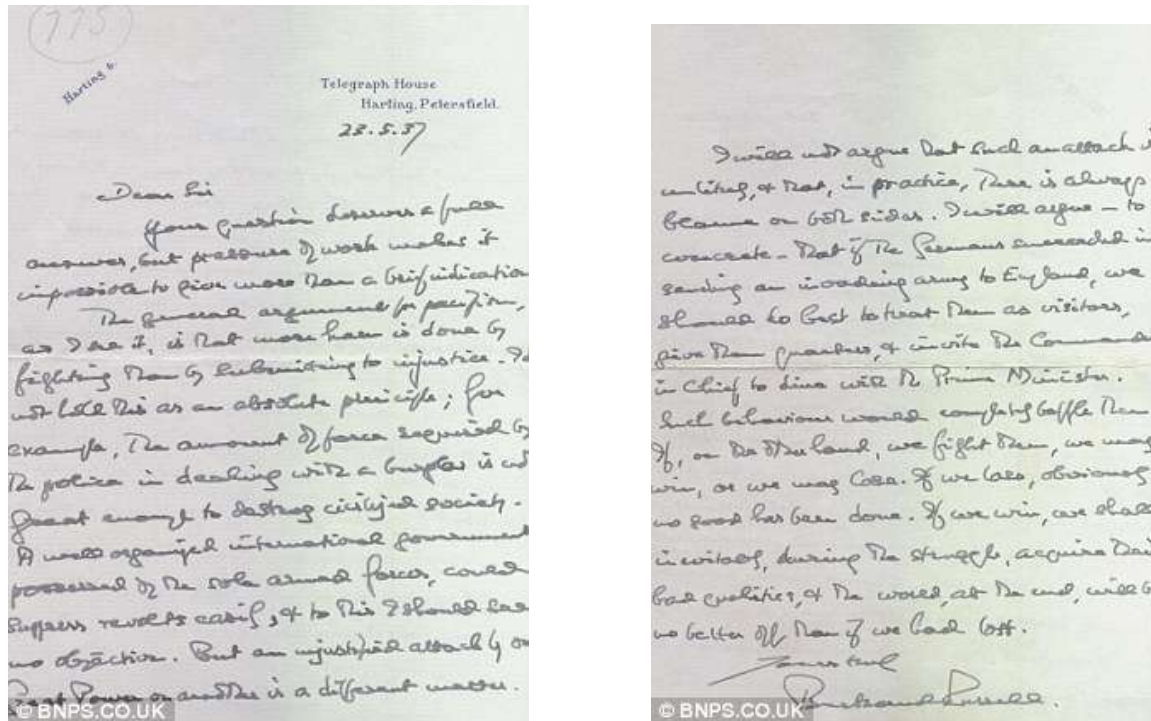 775
Harting 6.
Telegraph House
Harting, Petersfield.
23.5.37
Dear Sir
Your question deserves a full
answer, but pressure of work makes it
impossible to give more than a brief indication
The general argument for pacifism,
as I see it, is that more harm is done by
fighting than by submitting to injustice. I do
not hold this as an absolute principle; for
example, the amount of force required by
the police in dealing with a burglar is not
great enough to destroy civilized society.
A well organized international government
possessed of the sole armed forces, could
suppress revolts easily, & to this I should have
no objection. But an unjustified attack by one
Great Power on another is a different matter.
© BNPS.CO.UK
I will not argue that such an attack is
unlikely, & that, in practice, there is always
blame on both sides. I will argue – to
concrete – that if the Germans succeeded in
sending an invading army to England, we
should do best to treat them as visitors,
give them quarters, & invite the Commander
in Chief to dine with the Prime Minister.
Such behaviour would completely baffle them
If, on the other hand, we fight them, we may
win, or we may lose. If we lose, obviously
no good has been done. If we win, we shall
inevitably, during the struggle, acquire their
bad qualities, & the world, at the end, will be
no better off than if we had lost.
Yours truly
Bertrand Russell.
© BNPS.CO.UK